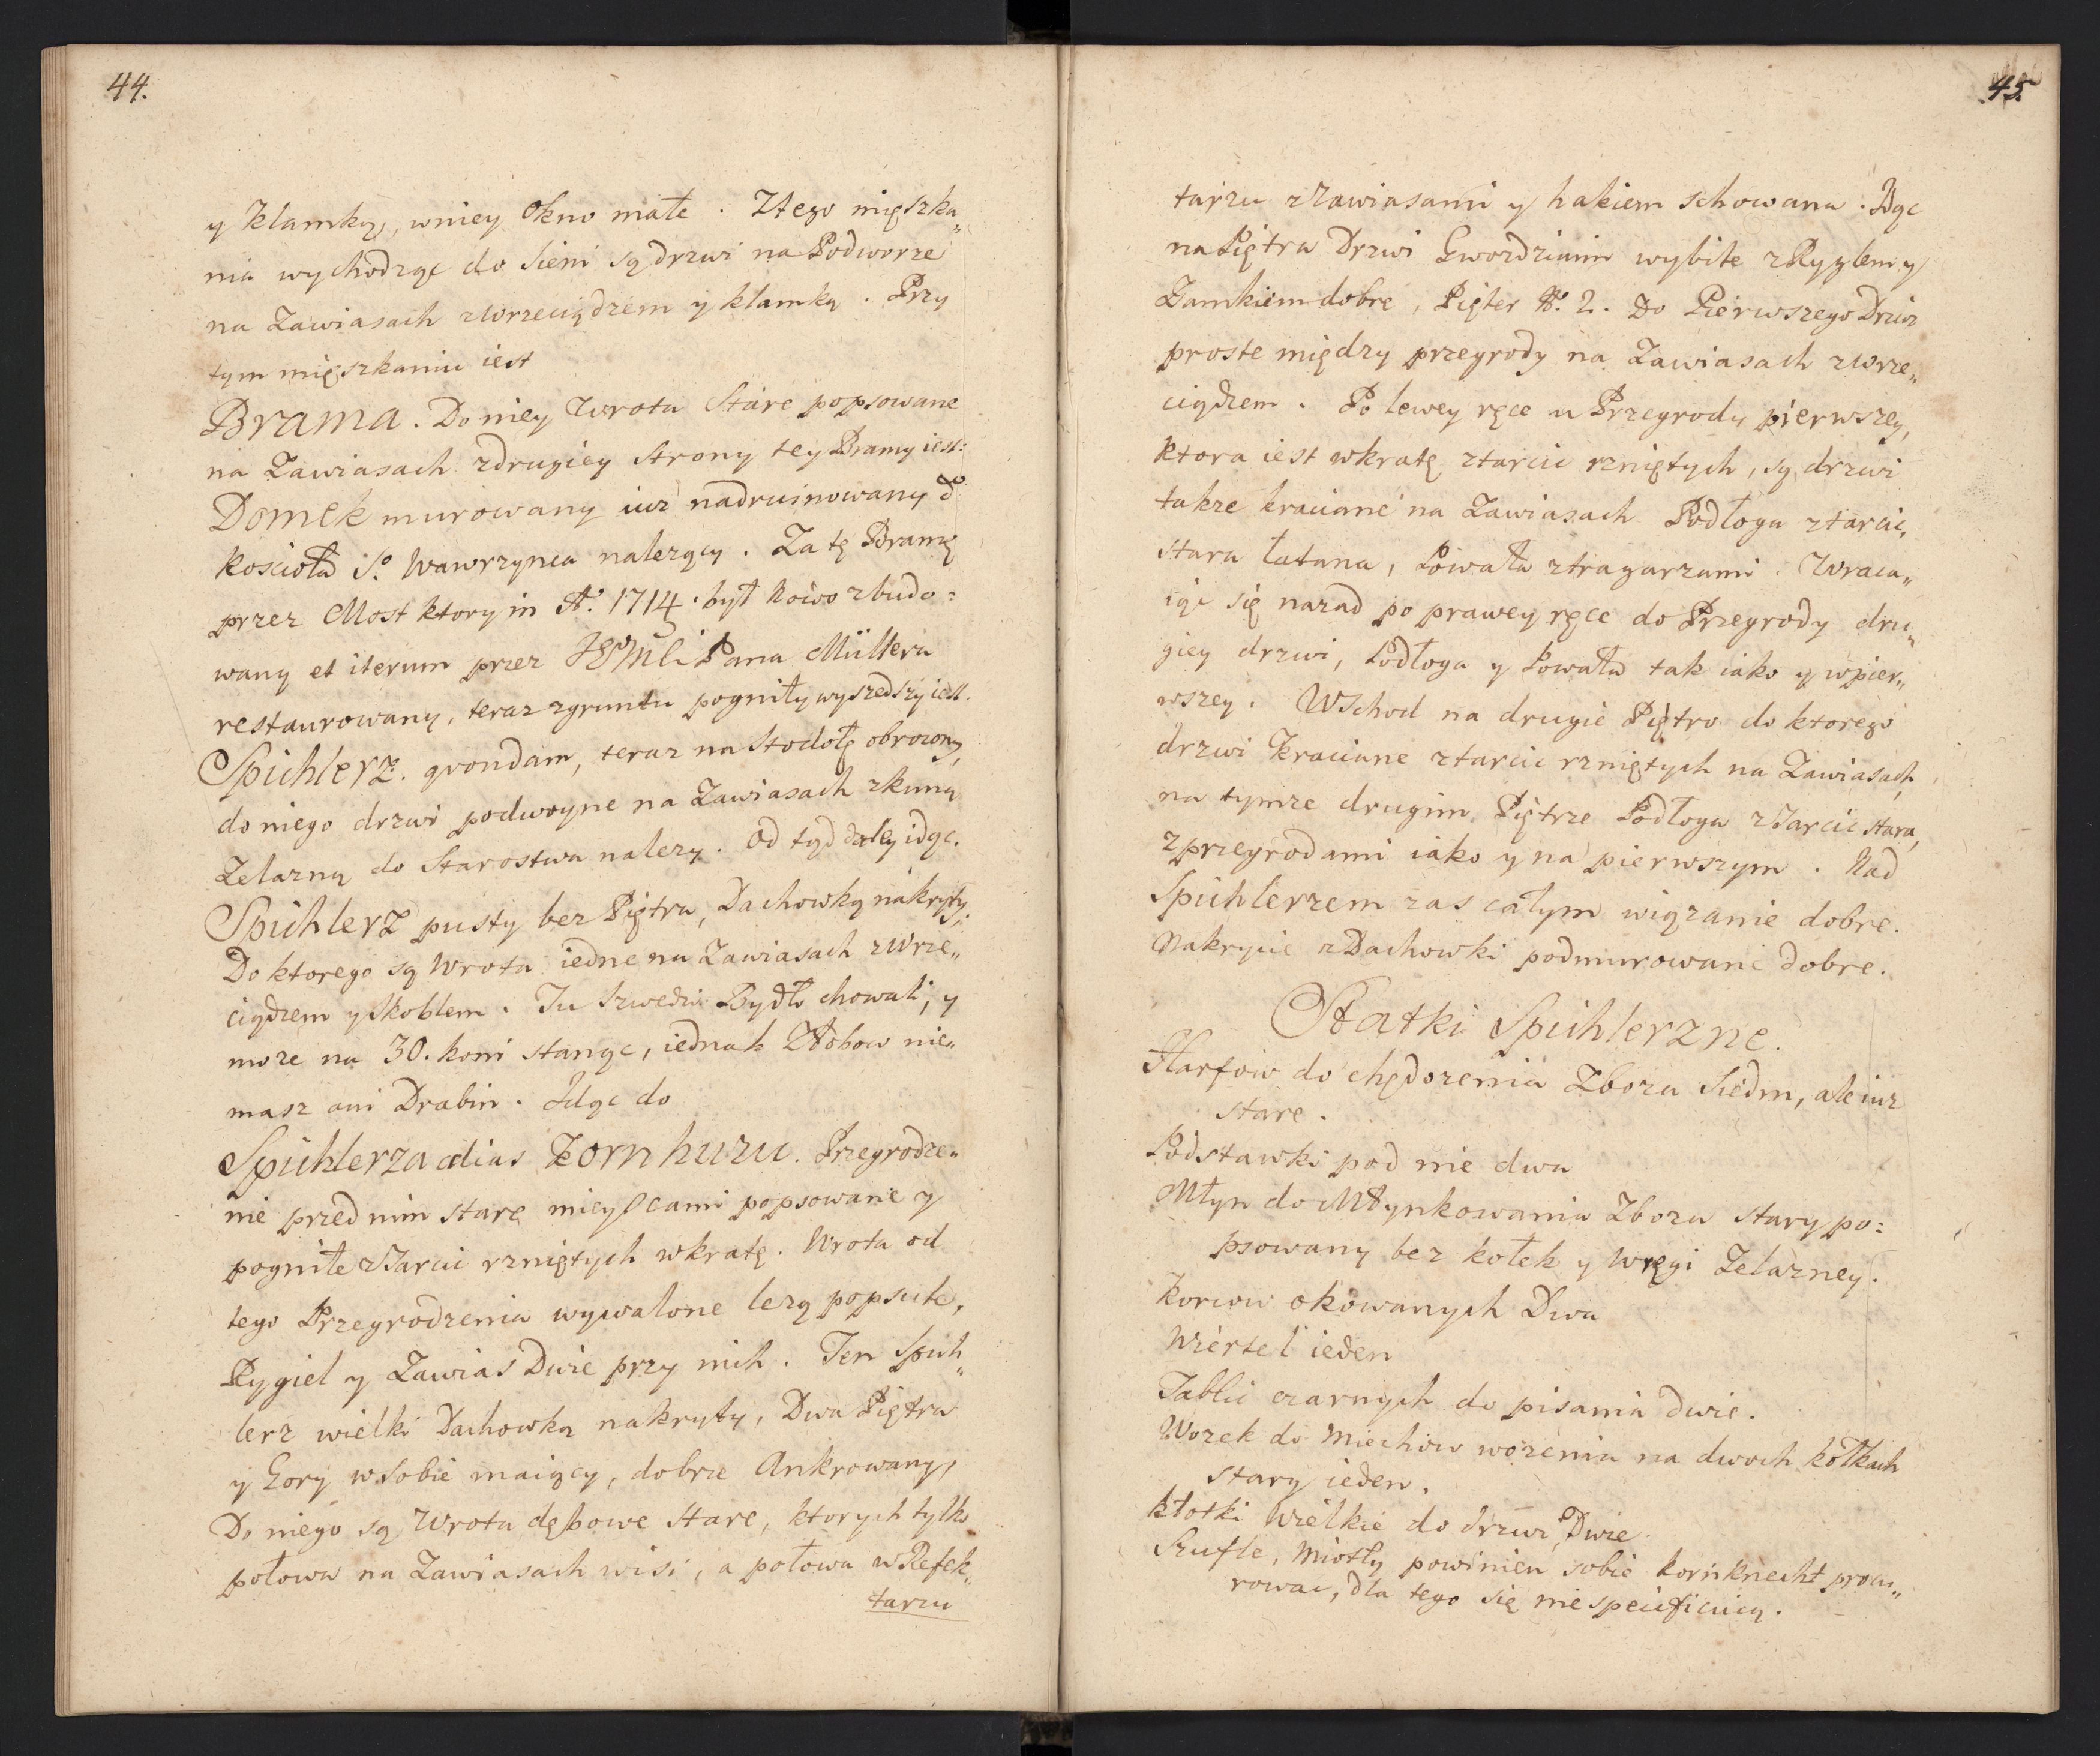 44.
y klamką, wniey okno małe. Ztego mięszka„
nia wychodząc do sieni są drzwi na Podworze
na Zawiasach zwrzeciądzem y klamką. Przy
tym mięszkaniu iest
Brama. Do niey wrota Stare popsowane
na Zawiasach zdrugiey strony tey Bramy iest:
Domek murowany iuz nadruinowany do
koscioła So. Wawrzynca nalezący. Za tę Bramę
przez Most ktory in Ao. 1714. był nowo zbudo=
wany et iterum przez Pana Müllera
restaurowany, teraz zgruntu pogniły wyszedszy iest.
Spichlerz. qvondam, teraz na Stodołę obrocony,
do niego drzwi podwoyne na Zawiasach zkuną
Zelazną do Starostwa nalezy. Od tąd daley idąc.
Spichlerz pusty bez Piętra, Dachowką nakryty,
Do ktorego są Wrota iedne na Zawiasach zwrze„
ciądzem y skoblem. Tu Szwedzi Bydło chowali, y
moze na 30. koni stanąc, iednak Złobow nie„
masz ani Drabin. Idąc do
Spichlerza alias Kornhuzu. Przegrodze„
nie przed nim stare mieyscami popsowane y
pogniłe zTarcic rzniętych wkratę. Wrota od
tego Przegrodzenia wywalone lezą popsute,
Rygiel y Zawias Dwie przy nich. Ten Spich„
lerz wielki Dachowką nakryty, Dwa Piętra
y Gory wsobie maiący, dobrze Ankrowany,
Do niego są Wrota dębowe stare, ktorych tylko
połowa na Zawiasach wisi, a połowa w Refek„
tarzu
45.
tarzu zZawiasami y hakiem schowana. Idąc
na Piętra Drzwi Gwozdziami wybite zRyglem y
Zamkiem dobre, Pięter No. 2. Do Pierwszego Drzwi
proste między przegrody na Zawiasach zwrze„
ciądzem. Po lewey ręce u Przegrody pierwszey,
ktora iest wkratę ztarcic rzniętych, są drzwi
takze kraciane na Zawiasach Podłoga ztarcic,
stara łatana, Powała ztragarzami. Wraca„
iąc się nazad po prawey ręce do Przegrody dru„
giey drzwi, Podłoga y Powała tak iako y wpier„
wszey. Wschod na drugie Piętro do ktorego
drzwi kraciane ztarcic rzniętych na Zawiasach,
na tymze drugim Piętrze Podłoga zTarcic stara,
zprzegrodami iako y na pierwszym. Nad
Spichlerzem zas całym wiązanie dobre.
Nakrycie zDachowki podmurowane dobre.
Statki Spichlerzne.
Harfow do chędozenia Zboza Siedm, ale iuz
stare.
Podstawki pod nie dwa
Młyn do Młynkowania Zboza stary po=
psowany bez kołek y Węgi Zelazney.
Korcow okowanych Dwa
Wiertel ieden
Tablic czarnych do pisania dwie.
Wozek do Miechow wozenia na dwoch kołkach
stary ieden.
kłotki wielkie do drzwi Dwie.
Szufle, Miotły powinien sobie kornknecht procu„
rowac, dla tego się nie specificuią.